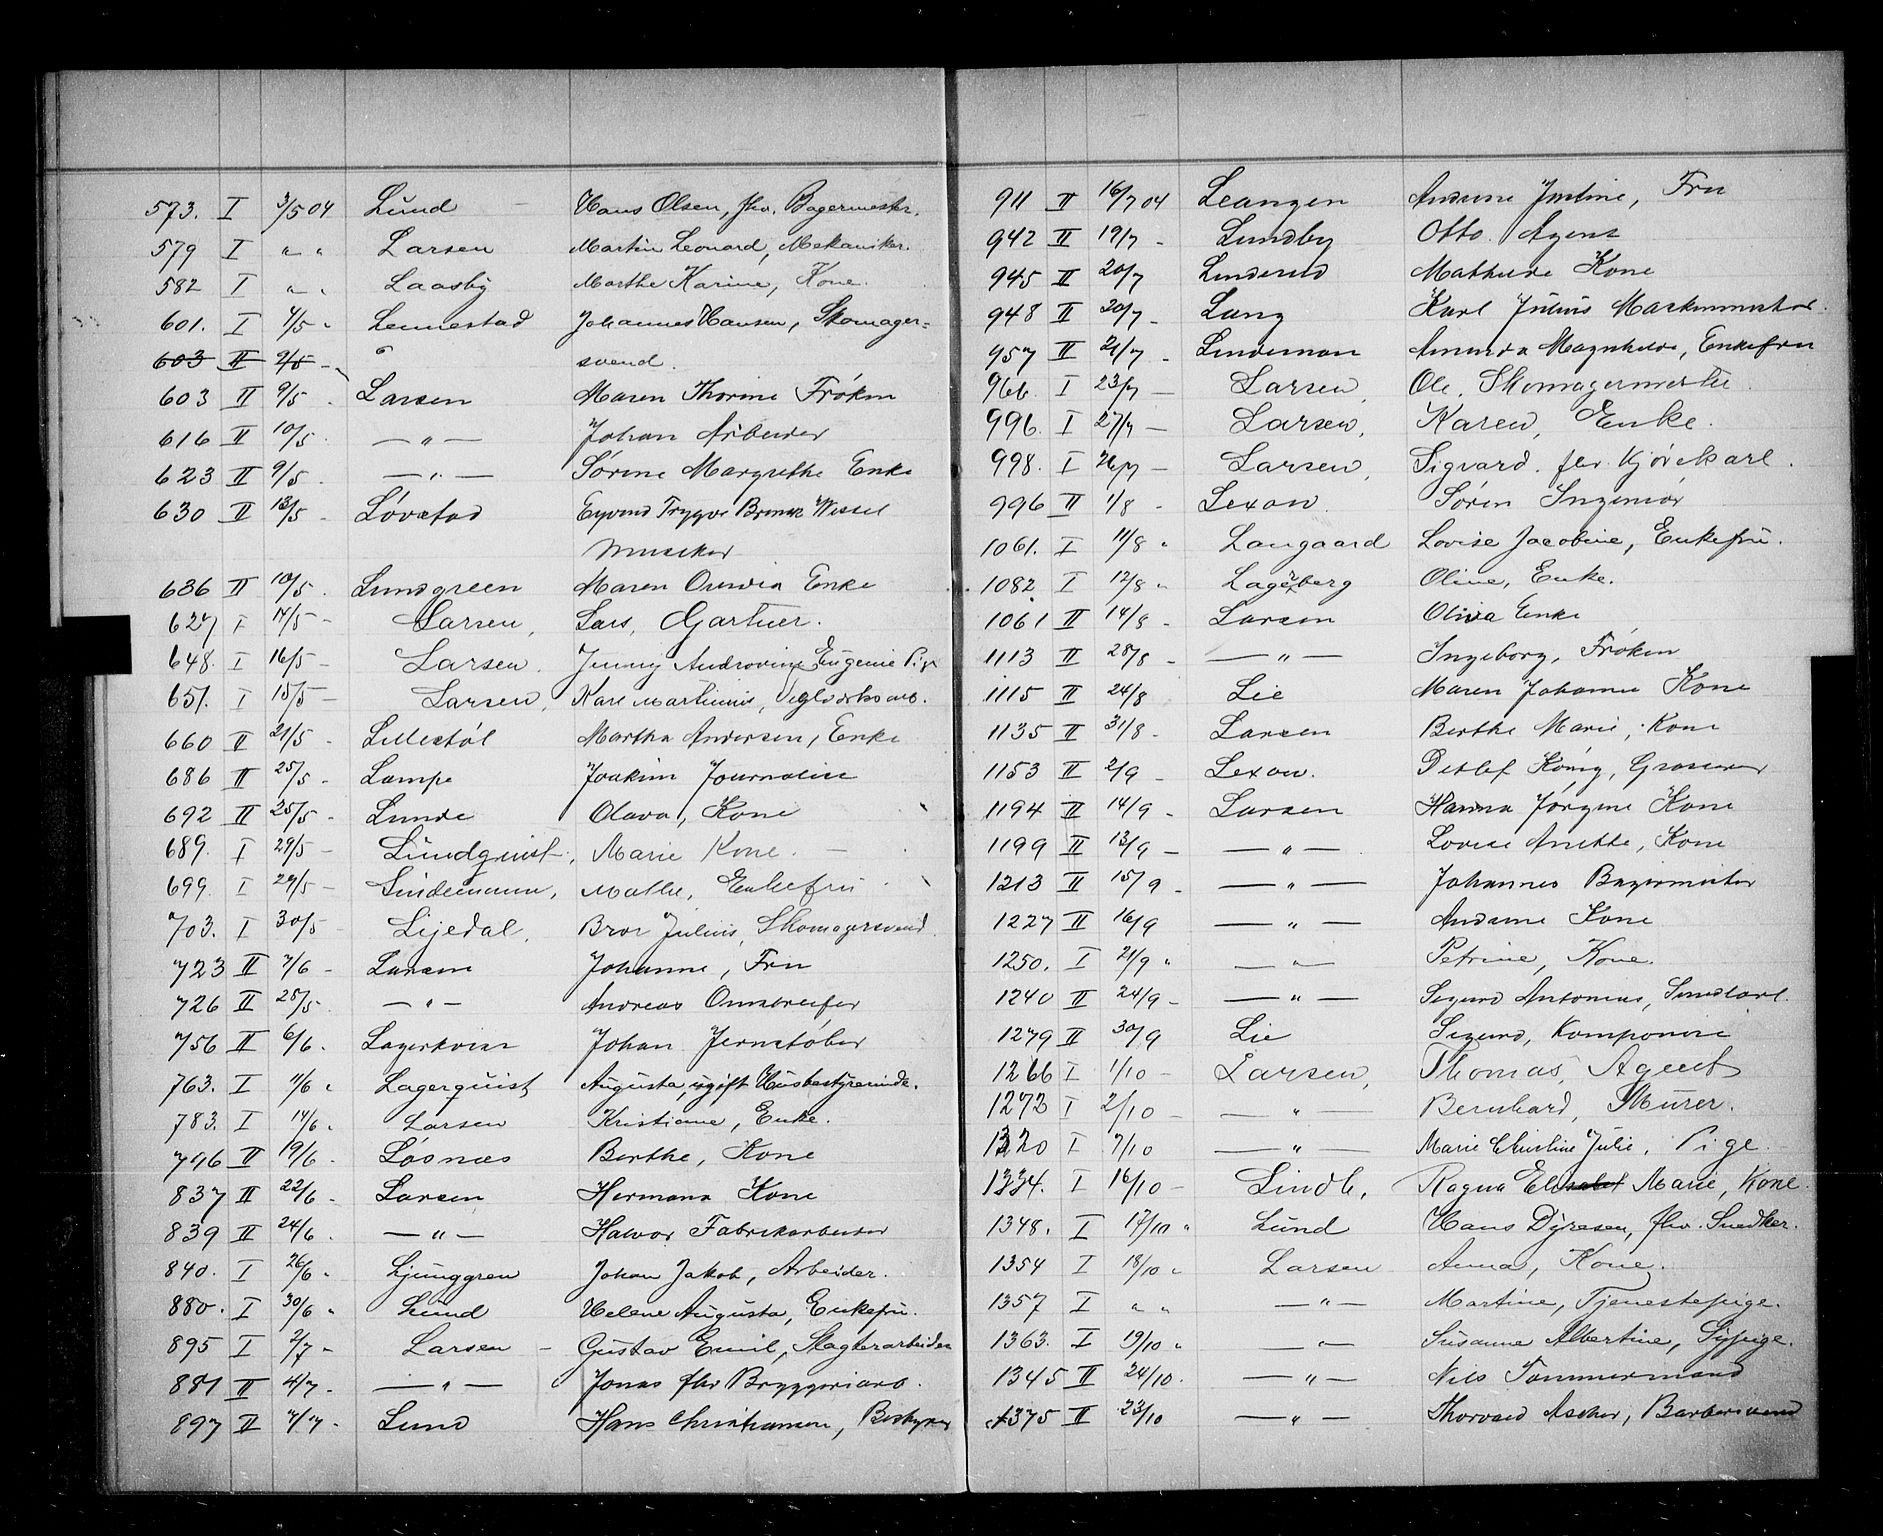 573. I 3/5 04 Lund Hans Olsen, fhv. Bagermester.
579 I " " Larsen Martin Leonard, Mekaniker.
582 I " " Laasby Marthe Karine, Kone.
601. I 4/5 " Lennestad Johannes Hansen, Skomager=
603 II 9/5 - svend.
603 II 9/5 - Larsen Maren Thorine Frøken
616 II 10/5 - — " — Johan Arbeider
623 II 9/5 - — " — Sørine Margrethe Enke
630 II 13/5 - Løvstad Eyvind Trygve Wessel
Musiker
636 II 10/5 - Lundgreen Maren Enke
627 I 14/5 - Larsen, Lars, Gartner.
648. I 16/5 - Larsen. Jenny Eugenie Pige
651. I 15/5 - Larsen, Karl Martinius,
660 II 21/5 - Lillestøl Martha Andersen, Enke
686 II 25/5 - Lampe Joakim Journalist
692 II 25/5 - Lunde Olava, Kone
689. I 29/5 - Lundquist, Marie Kone. —
699. I 27/5 - Lindemann, Mathe, Enkefru
703. I 30/5 - Lijedal, Bror Julius, Skomagersvend
723 II 7/6 - Larsen Johanne, Fru
726 II 28/5 - — " — Andreas
756 II 6/6 - Lagerkvist Johan Jernstøber
763. I 11/6 " Lagerquist Augusta, ugift Husbestyrerinde.
783. I 14/6 " Larsen Kristiane, Enke.
796 II 19/6 - Løsnæs Berthe, Kone
837 II 22/6 - Larsen Hermana Kone
839 II 24/6 - — " — Halvor Fabrikarbeider
840. I 26/6 " Ljunggren Johan Jakob, Arbeider.
880. I 30/6 " Lund Helene Augusta, Enkefru.
895 I 2/7 " Larsen - Gustav Emil, Slagterarbeider
881 II 4/7 - — " — Jonas fhv Bryggeriarb.
897 II 7/7 - Lund Hans Christiansen, Bestyrer
911 II 16/7 04 Leangen Justine, Fru
942 II 19/7 - Lundby Otto. Agent
945 II 20/7 Linderud Mathilde Kone
948 II 20/7 - Lang Karl Julius Maskinmester.
957 II 21/7 - Lindeman Amanda Magnhilde, Enkefru
966. I 23/7 — Larsen, Ole, Skomagermester
996. I 27/7 — Larsen, Karen, Enke.
998. I 26/7 — Larsen, Sigvard. fhv. Kjørekarl.
996 II 1/8 - Lexow. Søren Ingeniør
1061. I 11/8 " Langaard Lovise Jacobine, Enkefru.
1082. I 12/8 " Lagerberg Oline, Enke.
1061 II 14/8 - Larsen Olivia Enke
1113 II 28/8 - — " — Ingeborg, Frøken
1115 II 24/8 Lie Maren Johanne Kone
1135 II 31/8 - Larsen Berthe Marie, Kone
1153 II 2/9 - Lexow. Detlef König, Grosserer
1194 II 14/9 - Larsen Hanna Jørgine Kone
1199 II 13/9 - — " — Lovise Anette, Kone
1213 II 15/9 - — " — Johannes Bagermester
1227 II 16/9 — " — Andrine Kone
1250. I 21/9 " — " — Petrine, Kone.
1240 II 24/9 - — " — Sigurd Antonius, Smedlærl.
1279 II 30/9 Lie Sigurd, Komponist
1266 I 1/10 - Larsen, Thomas, Agent
1272 I 2/10 - — " — Bernhard, Murer.
1320 I 7/10 — " — Marie Christine Julie, Pige.
1334. I 16/10 - Lindh, Ragna Elisabet Marie, Kone.
1348. I 17/10 " Lund Hans Dyresen, fhv. Snedker.
1354 I 18/10 " Larsen Anna, Kone.
1357 I " " — " — Martine, Tjenestepige.
1363. I 19/10 " — " — Susanne Albertine, Sypige.
1345 II 24/10. — " — Nils Tømmermand
1375 II 23/10 — " — Thorvald Ascher, Barbersvend